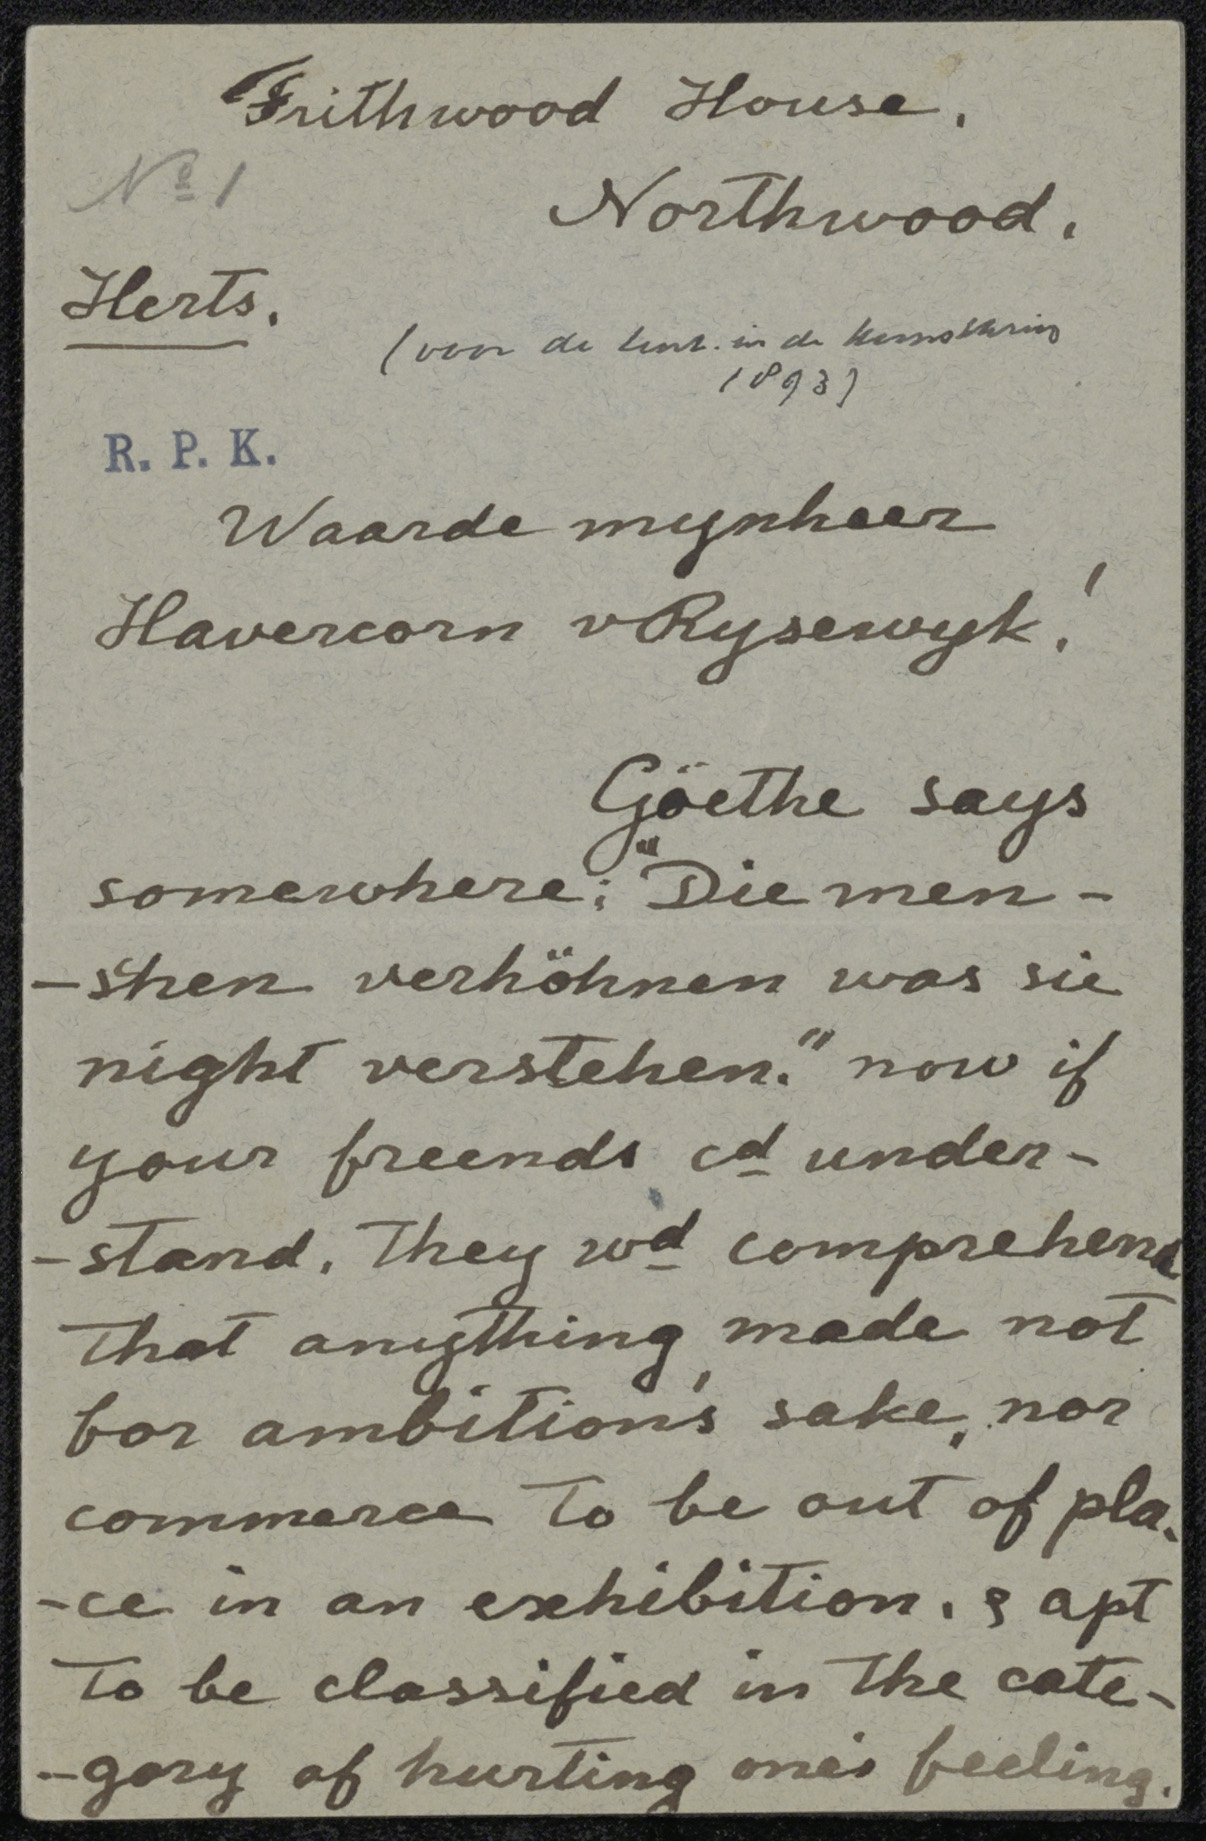 Frithwood House.
Nº 1
Northwood.
Herts.
(voor de tent. in de Kunstkring
1893)
R. P. K.
Waarde mynheer
Havercorn v Rysewyk!
Göethe says
somewhere: "Die men-
-shen verhöhnen was sie
night verstehen." now if
your freends cd under-
-stand, they wd comprehend
that anything made not
for ambition's sake, nor
commerce to be out of pla-
-ce in an exhibition, & apt
to be classified in the cate-
-gory of hurting one's feeling.